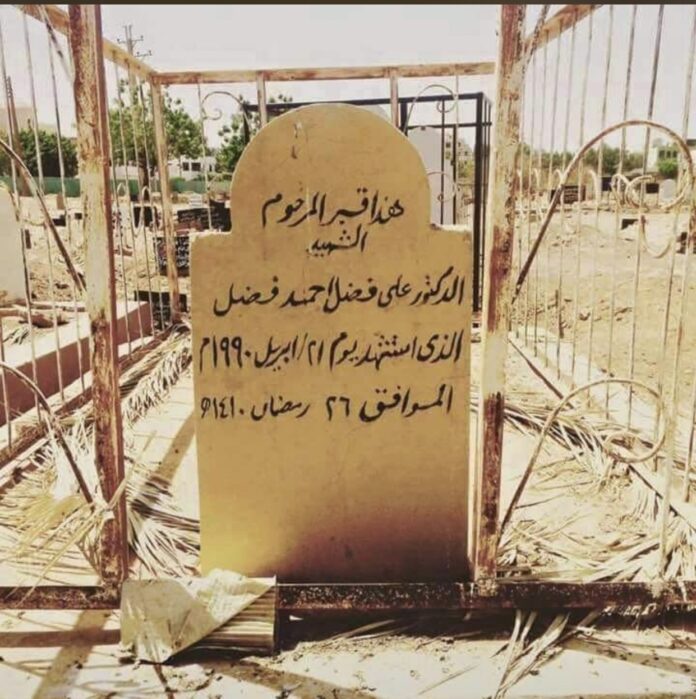 هذا قبر المرحوم
الشهيد
الدكتور على فضل احمد فضل
الذى استشهد يوم ٢١/ابريل ١٩٩٠م
الموافق ٢٦ رمضان ١٤١٠ه